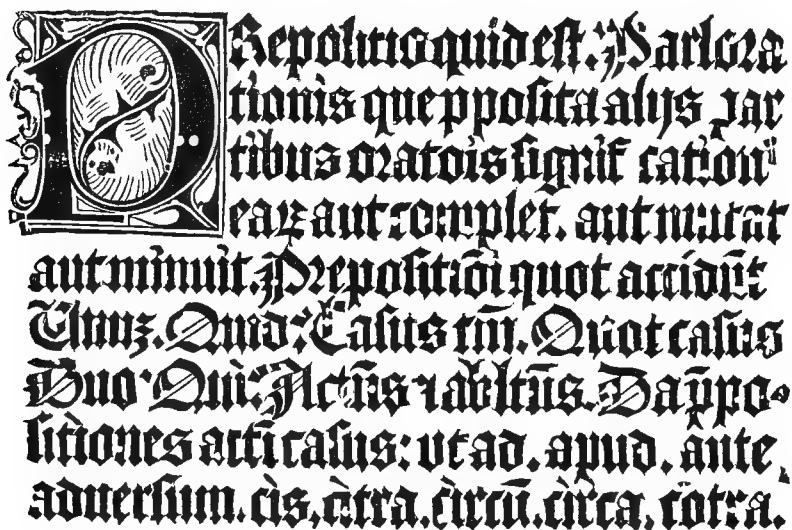 PRepositio quid est. Pars ora
tionis que pposita alijs par
tibus oratõis significationẽ
eaꝝ aut complet. aut mutat
aut minuit. Prepositiõi quot accidũt
Unuz. Quid? Casus tm̃. Quot casus
Duo. Qui? Actũs ⁊ ablatũs. Da p̃po-
sitiones acti casus: vt ad. apud. ante.
aduersum. cis. citra. circũ. circa. cõtra.